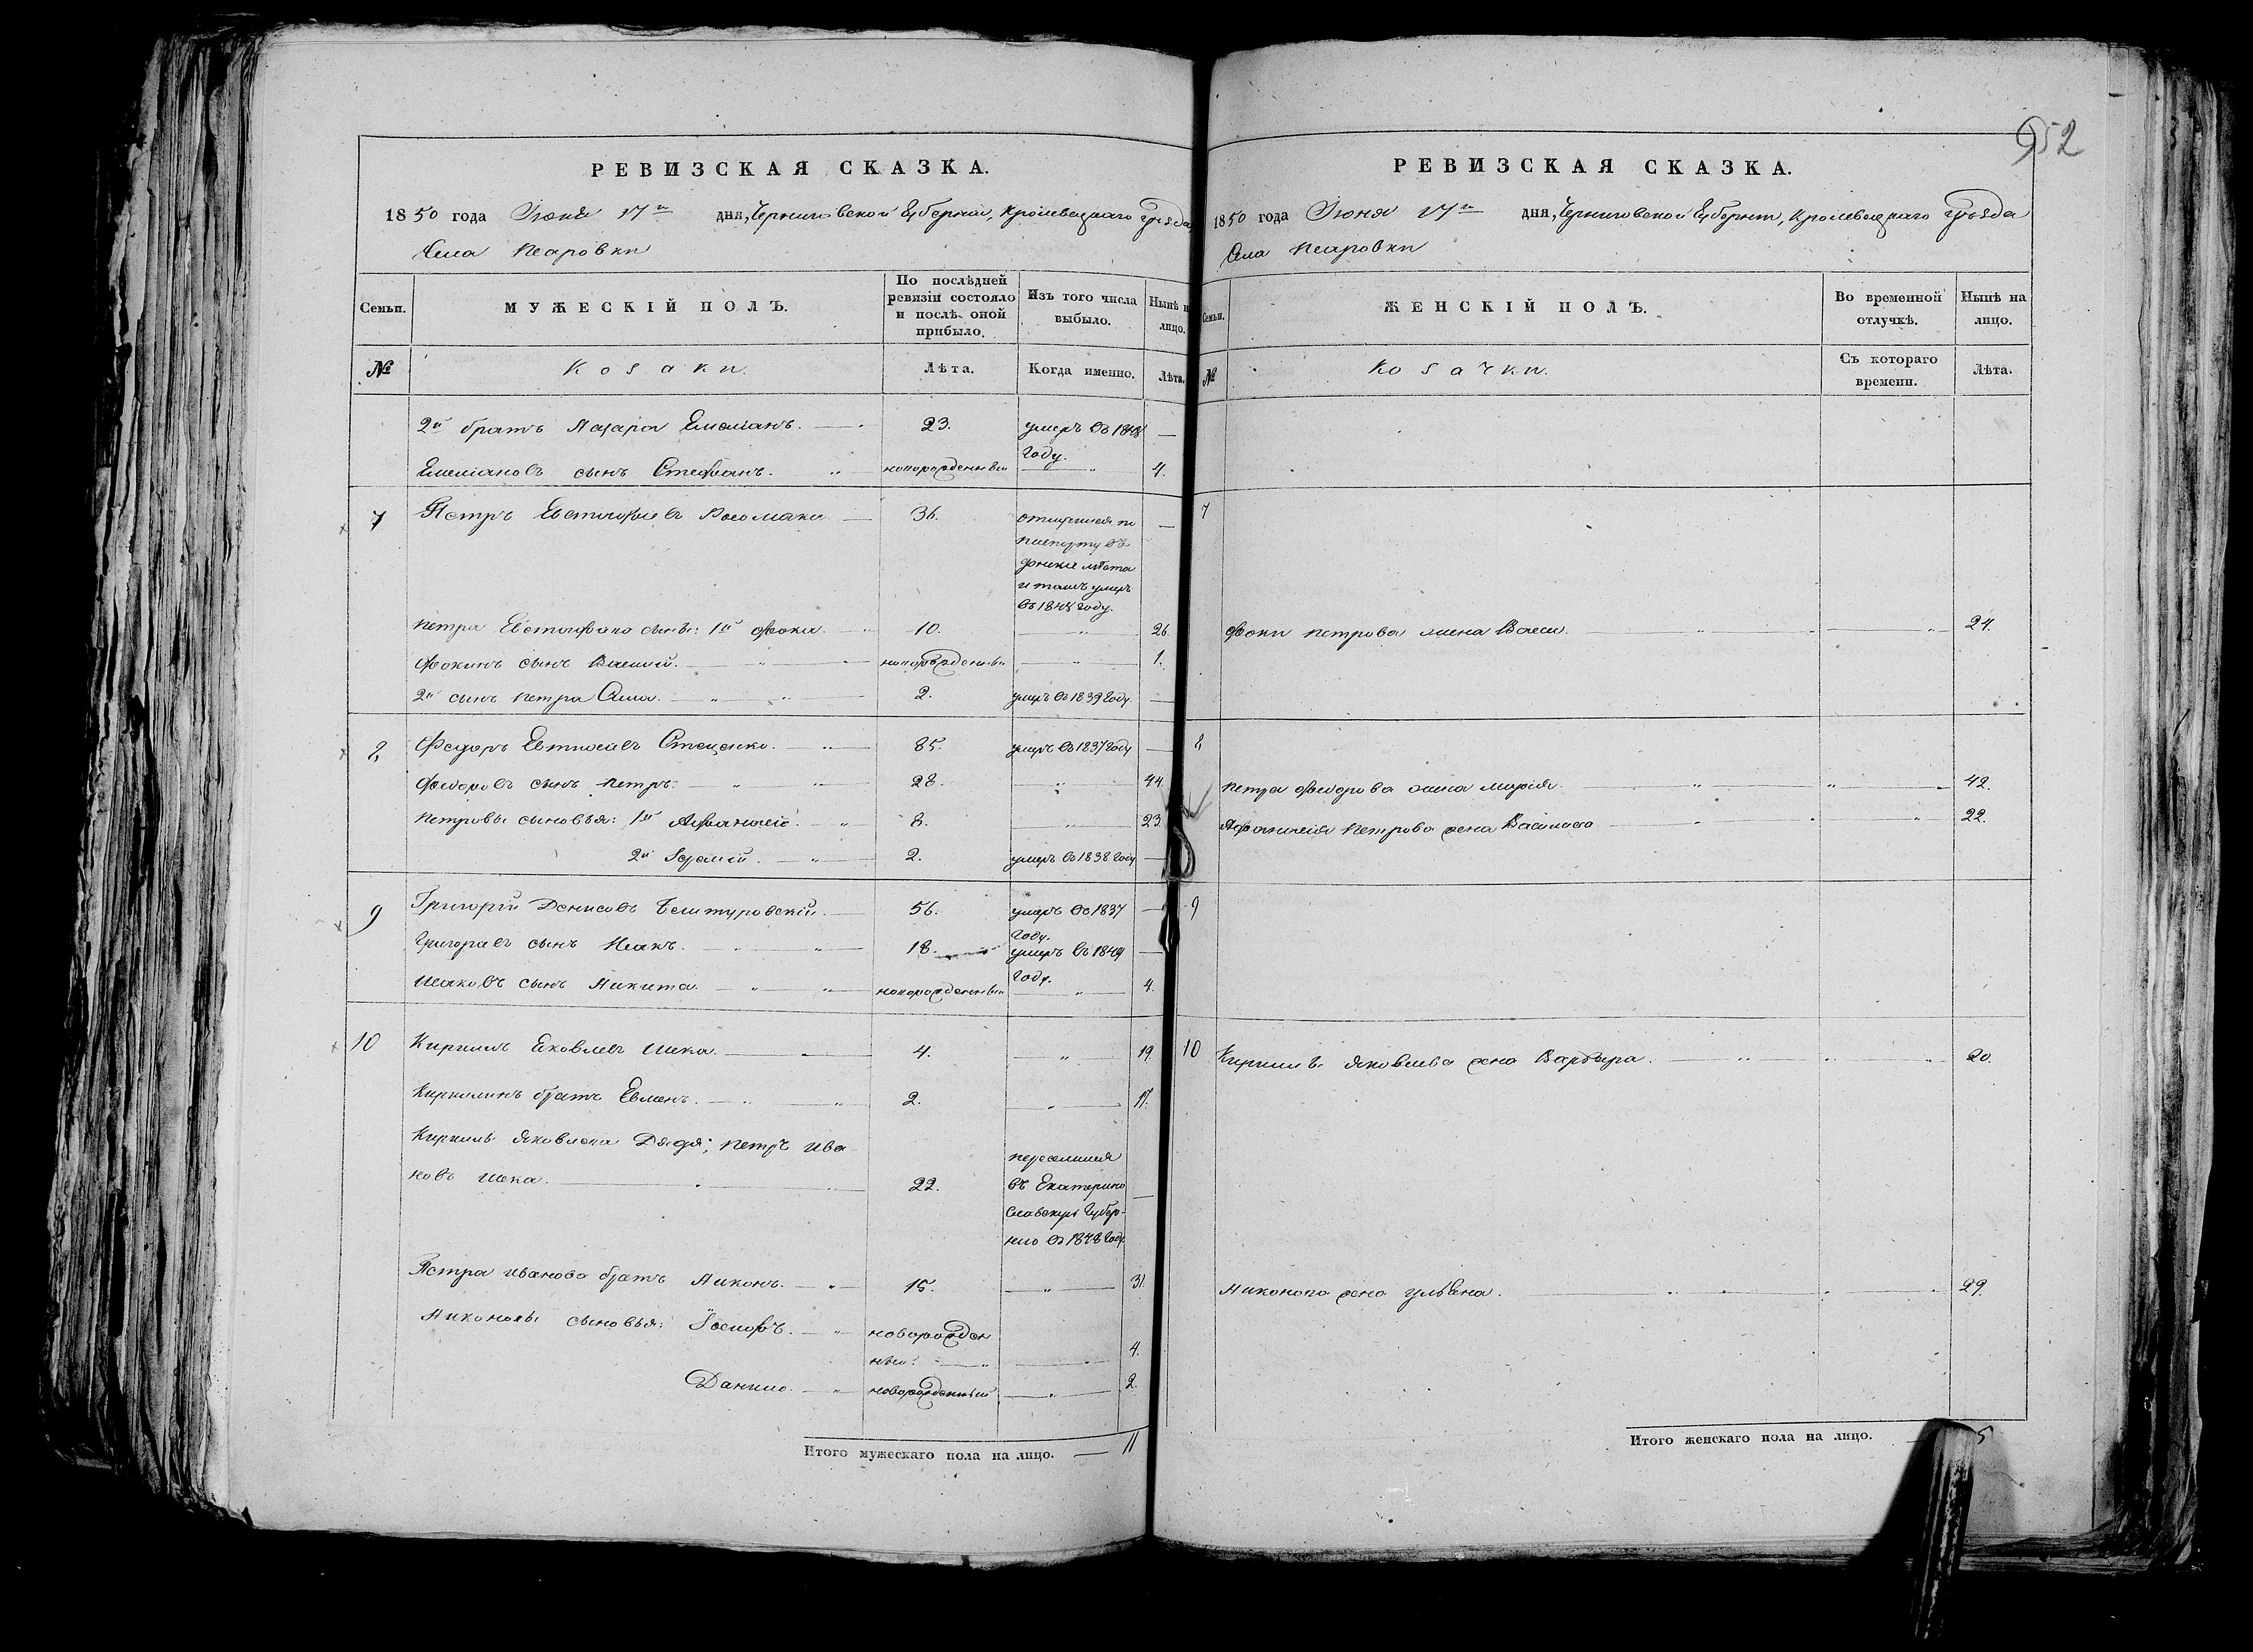 952
РЕВИЗСКАЯ СКАЗКА.
1850 года Іюня 17го дня, Черниговской Губерніи, Кролевецкаго Уѣзда
Села
Семьи.
МУЖЕСКІЙ ПОЛЪ.
По послѣдней ревизіи состояло и послѣ оной прибыло.
Изъ того числа выбыло.
Нынѣ на лицо.
№
Козаки.
Лѣта.
Когда именно.
Лѣта.
2й братъ Назара Емеліанъ. 23. умеръ въ 1848 году. —
Емеліановъ сынъ Стефанъ. новорожденный 4.
7 Петръ Евстафіевъ 36. отлучился по паспорту въ донские мѣста и тамъ умеръ въ 1848 году. —
Петра Евстафіева сынъ: 1й Фока. 10. 26.
Фокинъ сынъ Василій. новорожденный 1.
2й сынъ Петра Сила. 2. умеръ въ 1839 году. —
8 Федоръ Евтиѳіевъ Стеценко. 85. умеръ въ 1837 году —
Федоровъ сынъ Петръ. 28. 44.
Петровы сыновья: 1й Афанасій. 8. 23.
2й 2. умеръ въ 1838 году —
9 Григорій Денисовъ 56. умеръ въ 1837 году. —
Григорьевъ сынъ Исакъ. 18. умеръ въ 1849 году. —
Исаковъ сынъ Никита. новорожденный 4.
10 Кириллъ Яковлевъ 4. 19.
Кириллинъ братъ Евменъ. 2. 17.
Кирилла Яковлева Дядя; Петръ Ива-
новъ 22. переселился въ Екатерино
славскую Губер-
нію въ 1848 году —
Петра Иванова братъ Никонъ. 15. 31.
Никоновы сыновья: Іосифъ. новорожден
ный. 4.
Данило. новорожденный 2.
Итого мужескаго пола на лицо. — 11
РЕВИЗСКАЯ СКАЗКА.
1850 года Іюня 17го дня, Черниговской Губерніи, Кролевецкаго Уѣзда
Села
Семьи.
ЖЕНСКІЙ ПОЛЪ.
Во временной отлучкѣ.
Нынѣ на лицо.
№
Козачки.
Съ котораго времени.
Лѣта.
7
Фоки Петрова жена 24.
8
Петра Федорова жена Марія. 42.
Афанасія Петрова жена Василиса 22.
9
10 Кирилла Яковлева жена Варвара. 20.
Никонова жена Ульяна. 29.
Итого женскаго пола на лицо. — 5